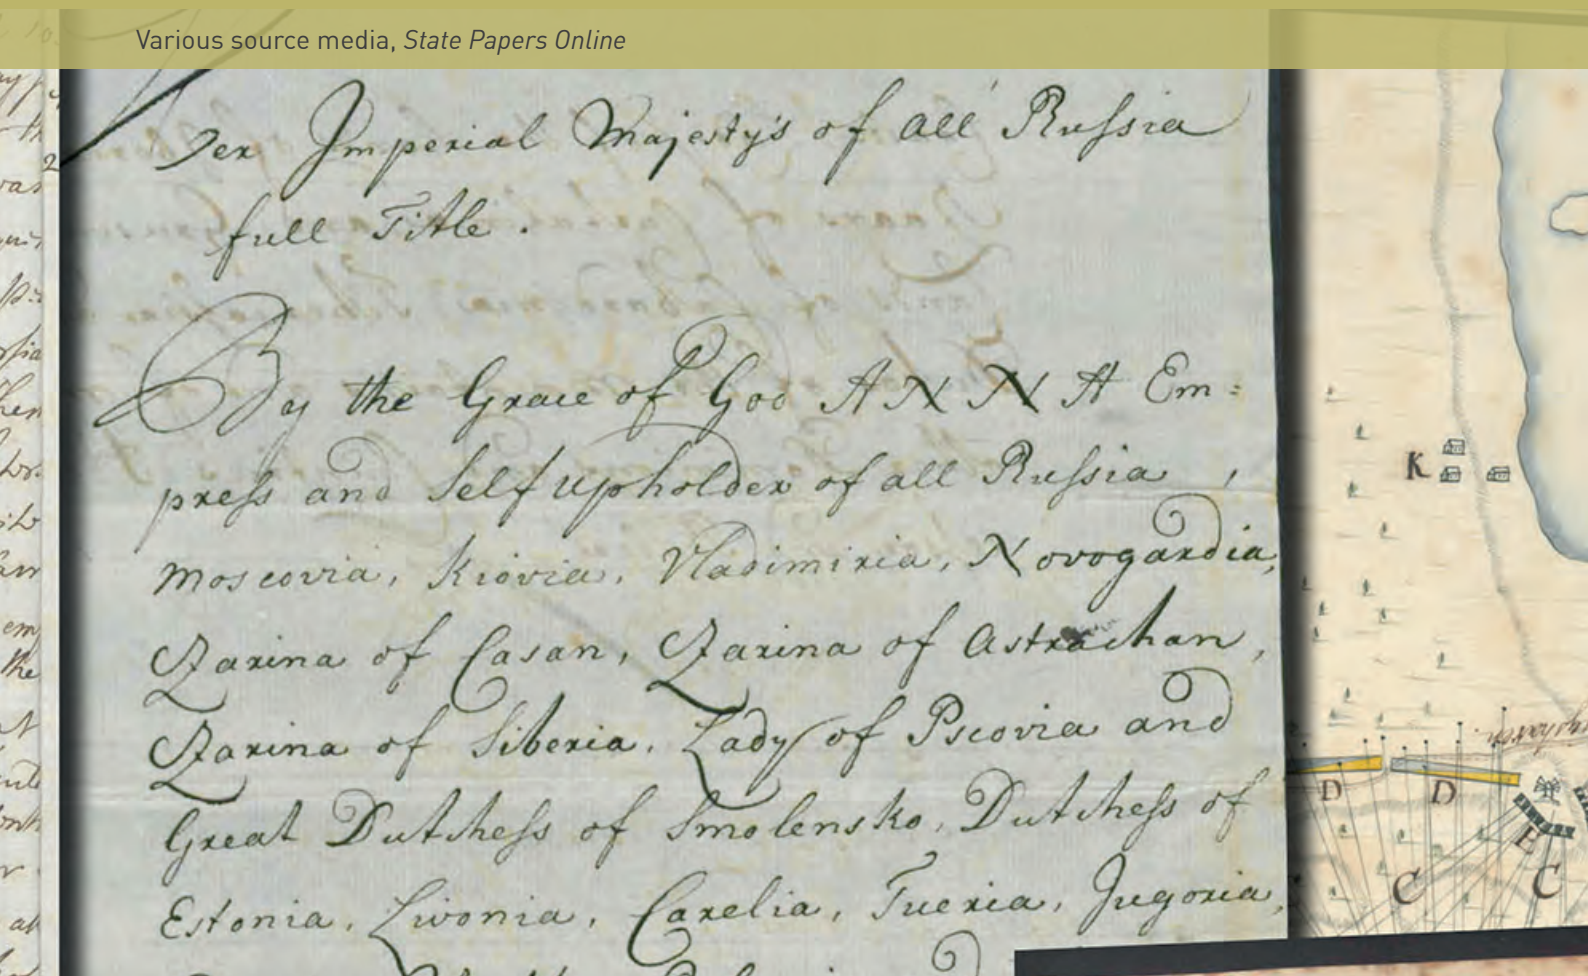 Various source media, State Papers Online
Her Imperial Majesty's of all Russia
full Title.
By the Grace of God ANNA Em:
press and Self upholder of all Russia,
Moscovia, Kiovia, Vladimiria, Novogardia,
Czarina of Casan, Czarina of Astrachan,
Czarina of Siberia, Lady of Pscovia and
Great Dutchess of Smolensko, Dutchess of
Estonia, Livonia, Carelia, Tueria, Jugoria,
K
D D
E
C C
the